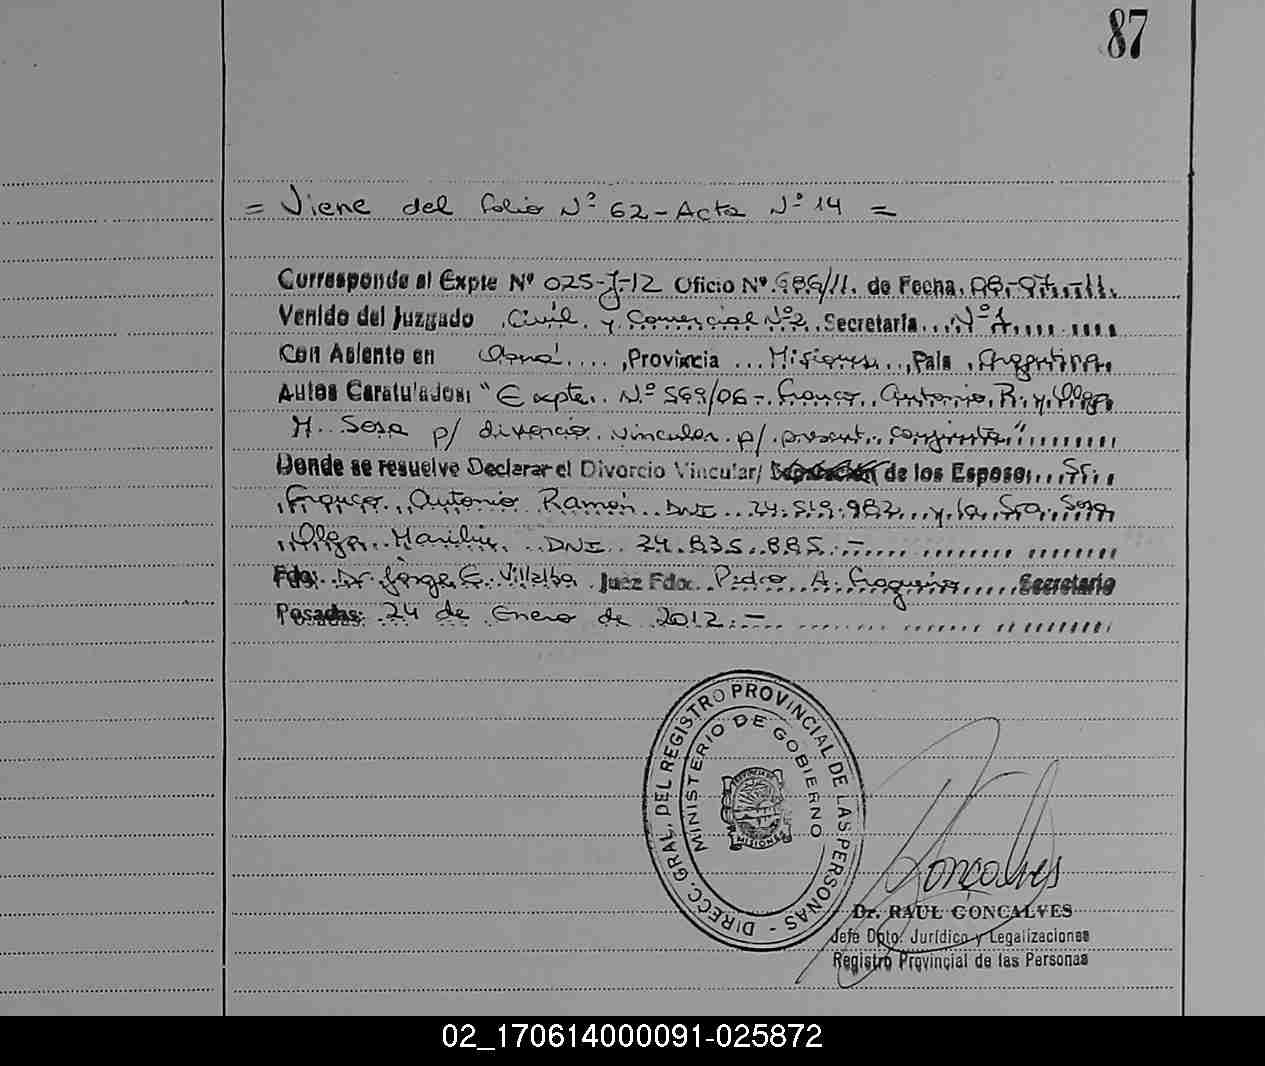 87
= Viene del folio Nº 62 - Acta Nº 14 =
Corresponde al Expte Nº 025-J-12 Oficio Nº 986/11. de Fecha, 08-07-11.
Venido del Juzgado Civil y Comercial Nº2, Secretaría Nº 1
Con Asiento en Oberá, Provincia Misiones, País Argentina
Autos Caratulados: "Expte. Nº 569/06 - Franco Antonio R. y Olga
M. Sosa p/ divorcio vincular p/ present. conjunta"
Donde se resuelve Declarar el Divorcio Vincular/ de los Esposo: Sr.
Franco Antonio Ramón DNI 24.519.982 y la Sra. Sosa
Olga DNI 24.835.885.-
Fdo: Dr Jorge E. Villalba Juez Fdo: Pedro A. Secretario
Posadas: 24 de Enero de 2012.-
DIRECC. GRAL. DEL REGISTRO PROVINCIAL DE LAS PERSONAS -
MINISTERIO DE GOBIERNO
MISIONES
Goncalves
Dr. RAUL GONCALVES
Jefe Dpto. Jurídico y Legalizaciones
Registro Provincial de las Personas
02_170614000091-025872